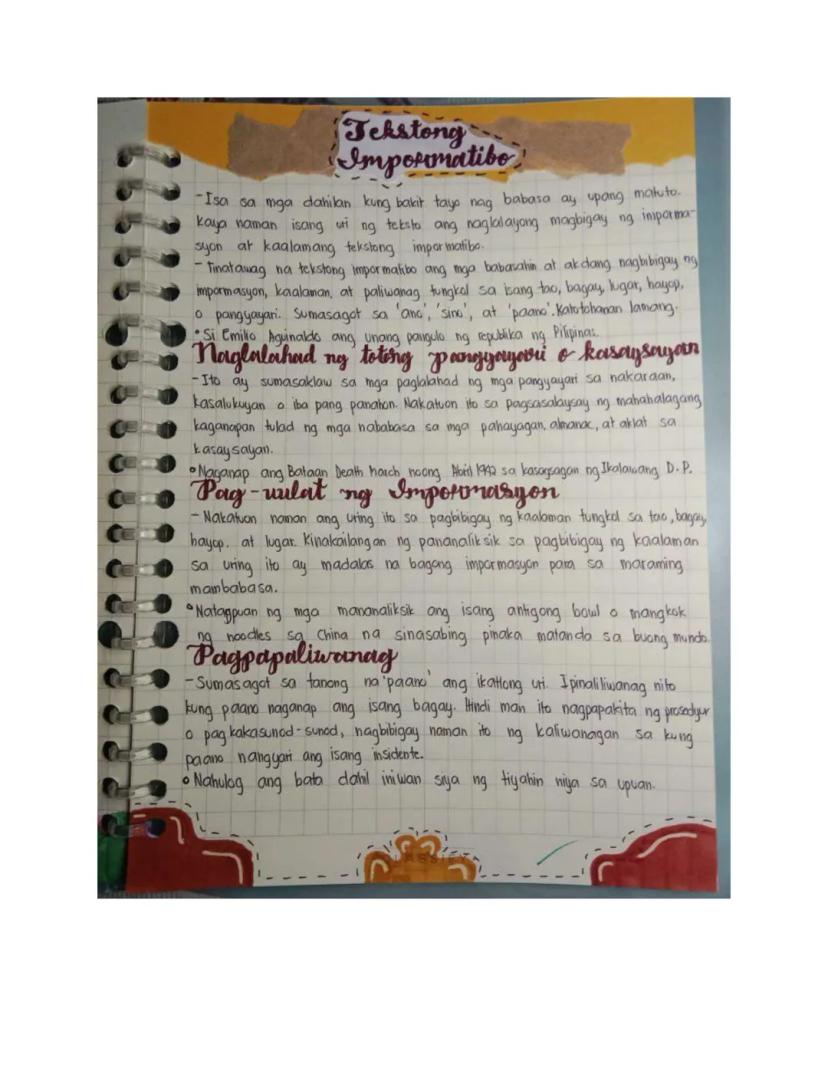 Tekstong
Impormatibo
- Isa sa mga dahilan kung bakit tayo nag babasa ay upang matuto.
Kaya naman isang uri ng teksto ang naglalayong magbigay ng imporma-
syon at kaalamang tekstong impormatibo.
- Tinatawag na tekstong impormatibo ang mga babasahin at akdang nagbibigay ng
impormasyon, kaalaman, at paliwanag tungkol sa isang tao, bagay, lugar, hayop,
o pangyayari. Sumasagot sa 'ano', 'sino', at 'paano'. Katotohanan lamang.
• Si Emilio Aguinaldo ang unang pangulo ng republika ng Pilipinas.
Naglalahad ng totong pangyayari o kasaysayan
- Ito ay sumasaklaw sa mga paglalahad ng mga pangyayari sa nakaraan,
kasalukuyan o iba pang panahon. Nakatuon ito sa pagsasalaysay ng mahahalagang
kaganapan tulad ng mga nababasa sa mga pahayagan, almanac, at aklat sa
kasaysayan.
• Naganap ang Bataan Death March noong Abril 1942 sa kasagsagan ng Ikalawang D.P.
Pag-uulat ng Impormasyon
- Nakatuon naman ang uring ito sa pagbibigay ng kaalaman tungkol sa tao, bagay,
hayop, at lugar. Kinakailangan ng pananaliksik sa pagbibigay ng kaalaman
sa uring ito ay madalas na bagong impormasyon para sa maraming
mambabasa.
• Natagpuan ng mga mananaliksik ang isang antigong bowl o mangkok
ng noodles sa China na sinasabing pinaka matanda sa buong mundo.
Pagpapaliwanag
- Sumasagot sa tanong na 'paano' ang ikatlong uri. Ipinaliliwanag nito
kung paano naganap ang isang bagay. Hindi man ito nagpapakita ng prosedyur
o pagkakasunod-sunod, nagbibigay naman ito ng kaliwanagan sa kung
paano nangyari ang isang insidente.
• Nahulog ang bata dahil iniwan siya ng tiyahin niya sa upuan.